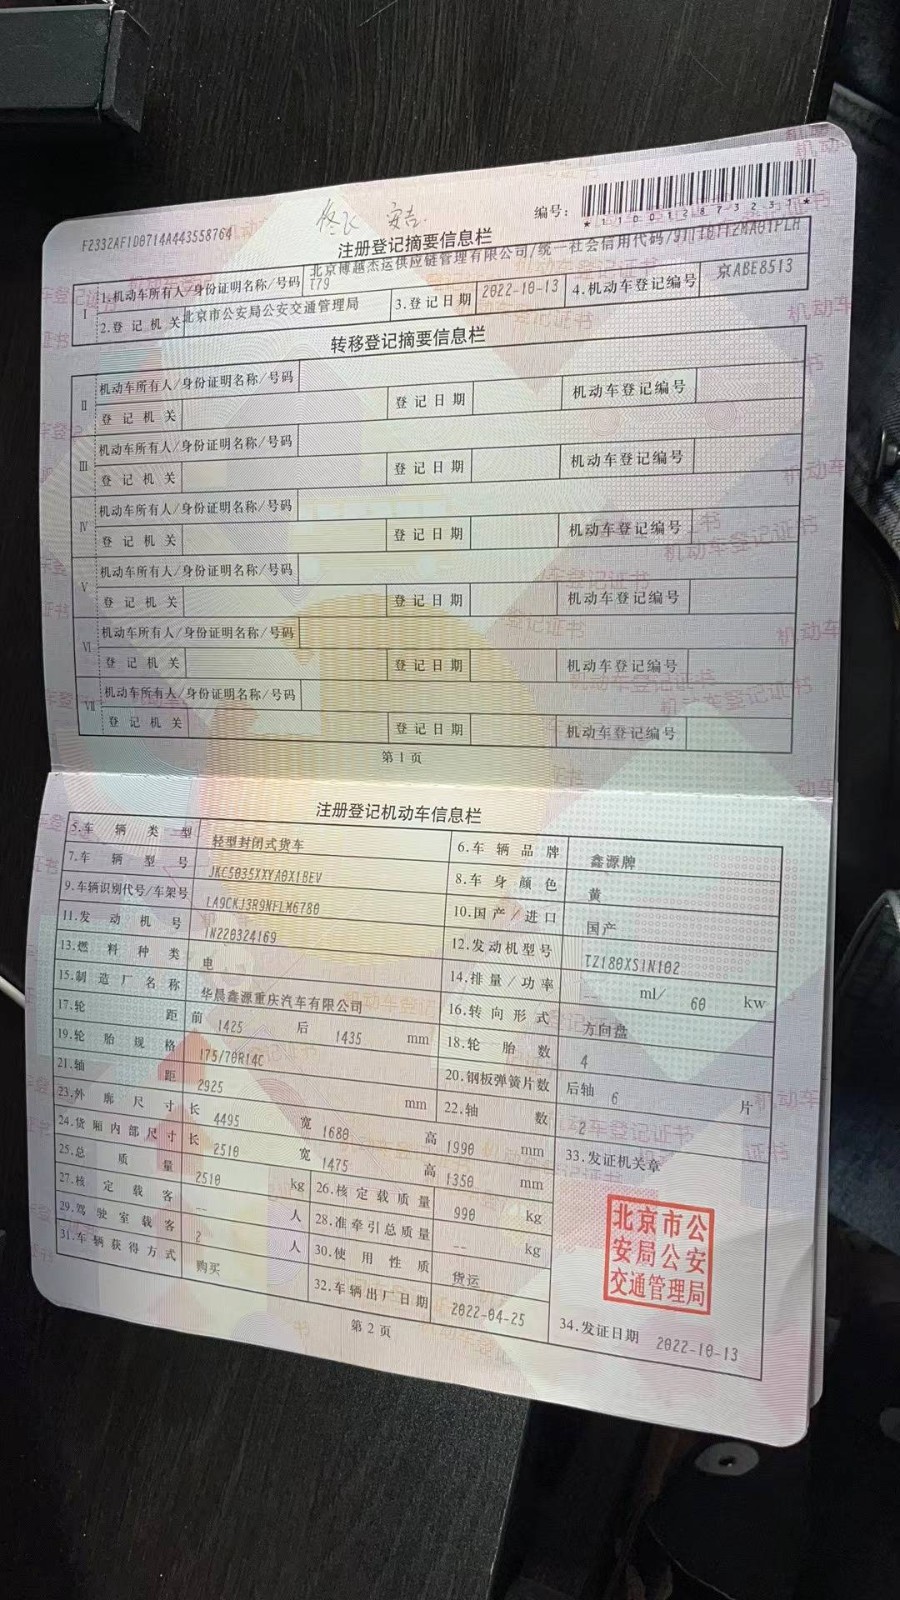 F2332AF1D0714A443558764
编号：
*110012873231*
注册登记摘要信息栏
Ⅰ 1.机动车所有人/身份证明名称/号码 北京博越杰运供应链管理有限公司/统一社会信用代码/91110112MA01PLH
T79
2.登记机关 北京市公安局公安交通管理局 3.登记日期 2022-10-13 4.机动车登记编号 京ABE8513
转移登记摘要信息栏
Ⅱ 机动车所有人/身份证明名称/号码
登记机关 登记日期 机动车登记编号
Ⅲ 机动车所有人/身份证明名称/号码
登记机关 登记日期 机动车登记编号
Ⅳ 机动车所有人/身份证明名称/号码
登记机关 登记日期 机动车登记编号
Ⅴ 机动车所有人/身份证明名称/号码
登记机关 登记日期 机动车登记编号
Ⅵ 机动车所有人/身份证明名称/号码
登记机关 登记日期 机动车登记编号
Ⅶ 机动车所有人/身份证明名称/号码
登记机关 登记日期 机动车登记编号
第1页
注册登记机动车信息栏
5.车辆类型 轻型封闭式货车 6.车辆品牌 鑫源牌
7.车辆型号 JKC5035XXYA0X1BEV 8.车身颜色 黄
9.车辆识别代号/车架号 LA9CKJ3R9NFLM6780 10.国产/进口 国产
11.发动机号 1N220324169 12.发动机型号 TZ180XS1N102
13.燃料种类 电 14.排量/功率 -- ml/ 60 kw
15.制造厂名称 华晨鑫源重庆汽车有限公司 16.转向形式 方向盘
17.轮距 前 1425 后 1435 mm 18.轮胎数 4
19.轮胎规格 175/70R14C 20.钢板弹簧片数 后轴 6 片
21.轴距 2925 mm 22.轴数 2
23.外廓尺寸 长 4495 宽 1680 高 1990 mm 33.发证机关章
24.货厢内部尺寸 长 2510 宽 1475 高 1350 mm
25.总质量 2510 kg 26.核定载质量 990 kg
27.核定载客 -- 人 28.准牵引总质量 -- kg
29.驾驶室载客 2 人 30.使用性质 货运
31.车辆获得方式 购买 32.车辆出厂日期 2022-04-25 34.发证日期 2022-10-13
北京市公
安局公安
交通管理局
第2页